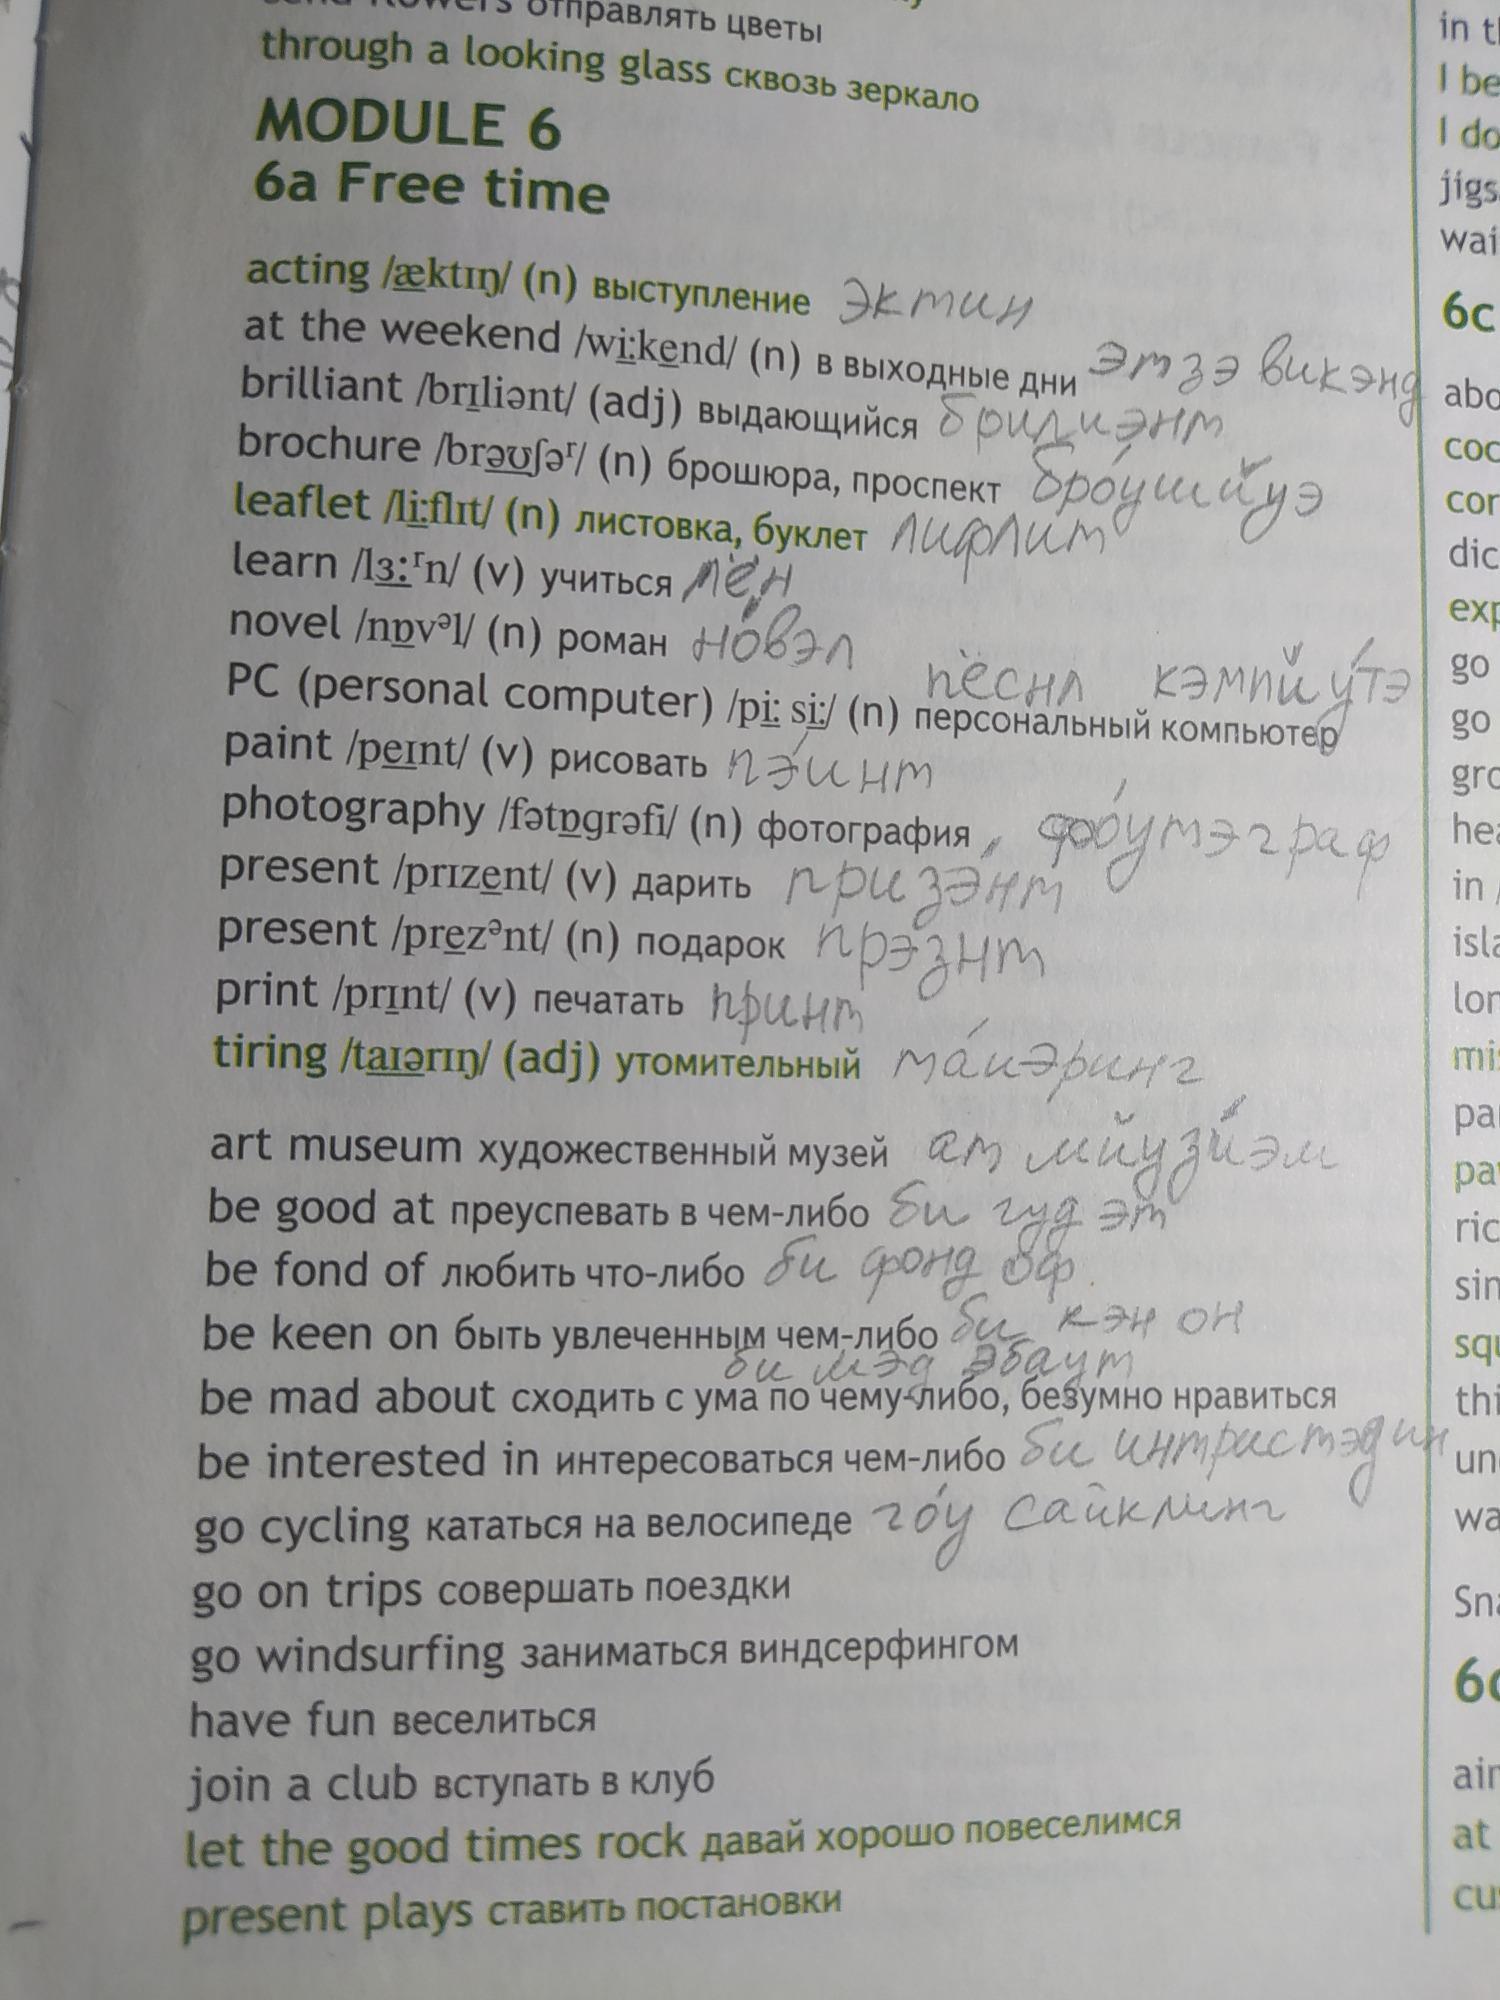 отправлять цветы
through a looking glass сквозь зеркало
MODULE 6
6a Free time
acting /æktɪŋ/ (n) выступление эктин
at the weekend /wiːkend/ (n) в выходные дни эт зэ викэнд
brilliant /brɪliənt/ (adj) выдающийся брилиэнт
brochure /brəʊʃəʳ/ (n) брошюра, проспект бро́ушйуэ
leaflet /liːflɪt/ (n) листовка, буклет лифлит
learn /lɜːʳn/ (v) учиться лён
novel /nɒvᵊl/ (n) роман но́вэл
пёснл кэмпйу́тэ
PC (personal computer) /piː siː/ (n) персональный компьютер
paint /peɪnt/ (v) рисовать пэ́инт
photography /fətɒgrəfi/ (n) фотография фо́утэграф
present /prɪzent/ (v) дарить призэ́нт
present /prezᵊnt/ (n) подарок прэзнт
print /prɪnt/ (v) печатать принт
tiring /taɪərɪŋ/ (adj) утомительный та́иэринг
art museum художественный музей ат мйузи́эм
be good at преуспевать в чем-либо би гуд эт
be fond of любить что-либо би фонд оф
be keen on быть увлеченным чем-либо би кэн он
би мэд эбаут
be mad about сходить с ума по чему-либо, безумно нравиться
be interested in интересоваться чем-либо би интристэд ин
go cycling кататься на велосипеде го́у сайклинг
go on trips совершать поездки
go windsurfing заниматься виндсерфингом
have fun веселиться
join a club вступать в клуб
let the good times rock давай хорошо повеселимся
present plays ставить постановки
in
I be
I do
6c
go
go
in
6
at